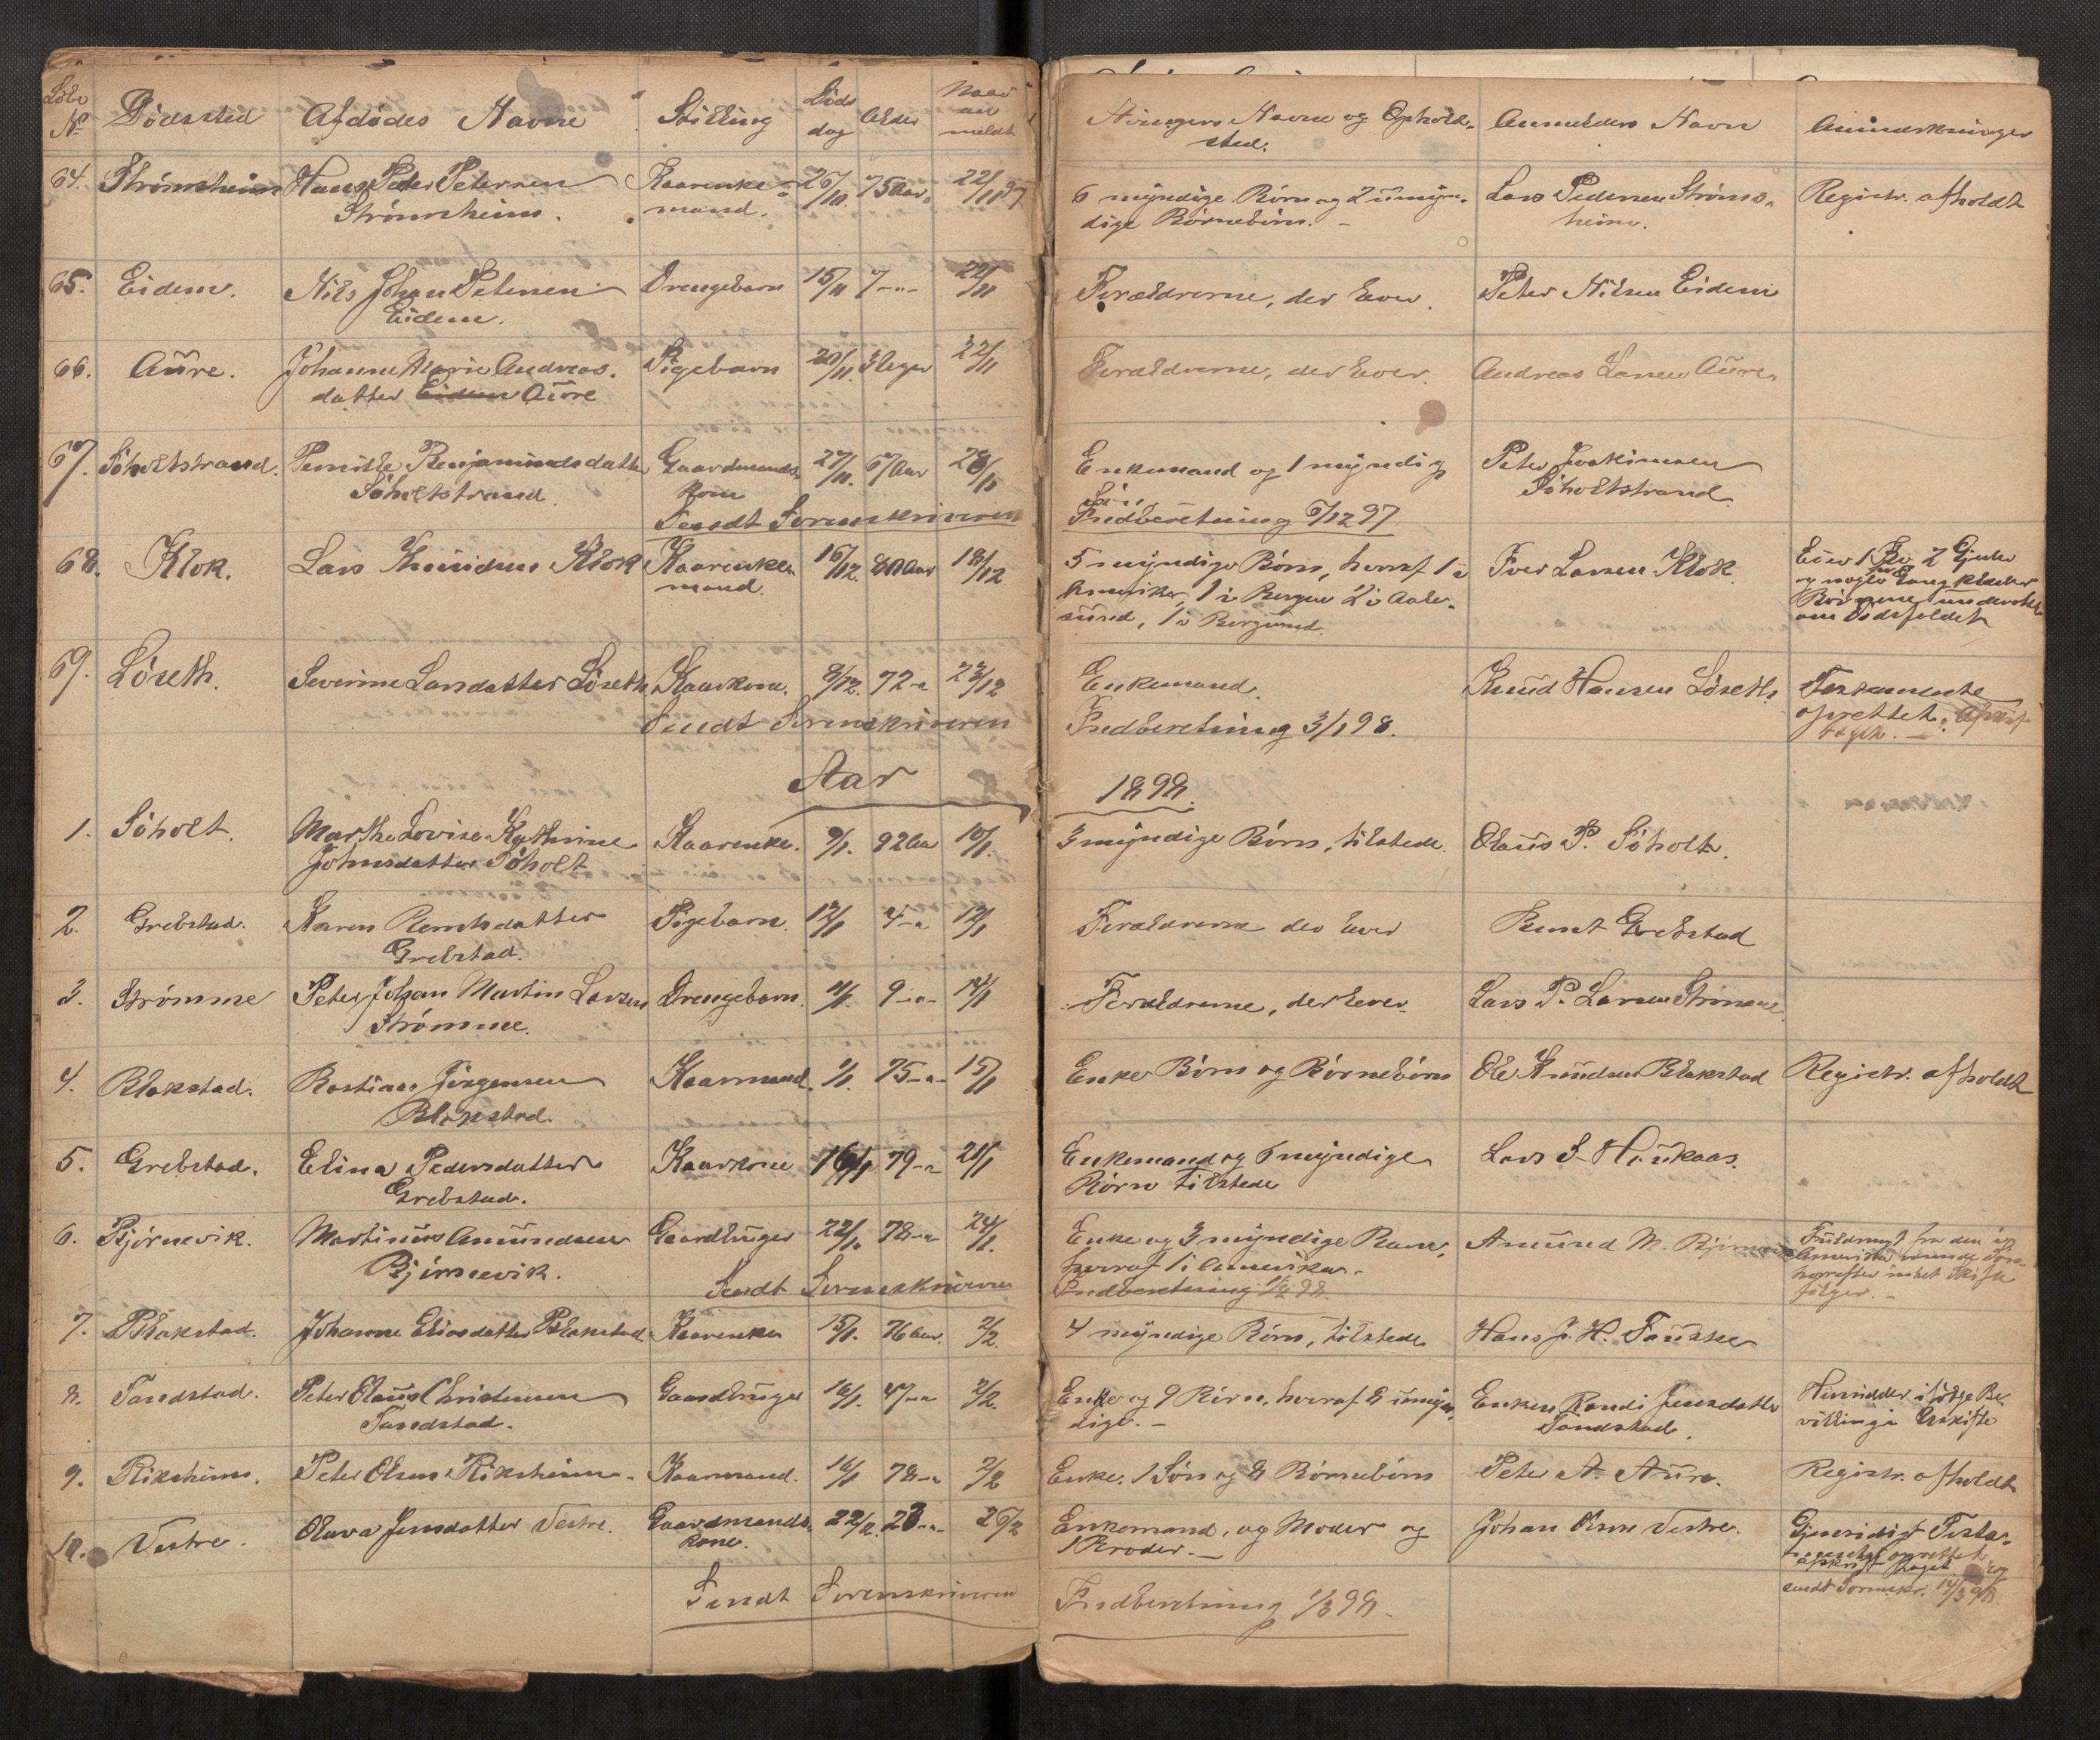 Löbe No Dödssted Afdödes Navne Stilling Döds dag Alder Naar an meldt Arvingers Navne og Opholds- sted. Anmelders Navn Anmærkninger
64. Strömsheim Hans Peder Petersen Kaarenke- 26/10. 75 Aar. 22/11 97 6 myndige Börn og 2 umyn- Lars Pedersen Ströms- Registr. afholdt
Strömsheim. mand. dige Börnebörn. - heim.
65. Eidem. Nils Johan Petersen Drengebarn 15/11 7 -"- 22/11 Forældrerne, der lever. Peter Nilsen Eidem
Eidem.
66. Aure. Johanne Marie Andreas- Pigebarn 20/11. 3 Uger 22/11 Forældrerne, der lever. Andreas Larsen Aure.
datter Eidem Aure
67. Söholtstrand. Pernille Benjaminsdatter Gaardmands 27/11. 67 Aar 28/11 Enkemand og 1 myndig Peter Joakimsen
Söholtstrand. kone Sön Söholtstrand.
Sendt Sorenskriveren Indberetning 6/12 97
68. Klok. Lars Klok Kaarenke- 16/12. 80 Aar 18/12 5 myndige Börn, hvoraf 1 i Iver Larsen Klok. Eier 1 Ko 2 Gjeder
mand. Amerika, 1 i Bergen 2 i Aale- og nogle Gangklæder
sund, 1 i Borgund. Börnene underrettet
om Dödsfaldet
69. Löseth. Severine Larsdatter Löseth Kaarkone. 9/12. 72 -"- 23/12 Enkemand. Knud Hansen Löseth. Testamente
Sendt Sorenskriveren Indberetning 3/1 98. oprettet. Afskrift
Aar 1898.
1. Söholt. Marthe Lovise Kathrine Kaarenke. 9/1. 92 Aar 10/1. 3 myndige Börn, tilstede. Olaus P. Söholt.
Johnsdatter Söholt
2. Grebstad. Karen Berntsdatter Pigebarn. 12/1 4 -"- 12/1 Forældrerne der lever Bernt Grebstad
Grebstad.
3. Strömme Peter Johan Martin Larsen Drengebarn. 11/1. 9 -"- 14/1 Forældrerne, der lever. Lars P. Larsen Strömme
Strömme.
4. Blakstad. Bastian Jörgensen Kaarmand. 1/1. 75 -"- 15/1 Enke Börn og Börnebörn Ole Knudsen Blakstad Registr. afholdt
Blakstad.
5. Grebstad. Elina Pedersdatter Kaarkone 16/1 79 -"- 21/1 Enkemand og 6 myndige Lars S. Haukaas.
Grebstad. Börn tilstede
6. Björnevik. Martinus Amundsen Gaardbruger 22/1. 78 -"- 24/1. Enke og 3 myndige Barn, Amund M. Björnevik Fuldmagt fra den i
Björnevik. hvoraf 1 i Amerika. Amerika
Sendt Sorenskriveren Indberetning 1/2 98. hvorefter intet Skifte
fölger. -
7. Blakstad. Johanne Eliasdatter Blakstad Kaarenke 15/1. 76 Aar. 2/2. 4 myndige Börn, tilstede Hans J. H. Fauske
8. Tandstad. Peter Olaus Christensen Gaardbruger 16/1. 47 -"- 2/2. Enke og 9 Börn, hvoraf 8 umyn- Enken Randi Jensdatter Hensidder ifölge Be-
Tandstad. dige. - Tandstad. villing i Uskifte
9. Riksheim. Peter Olsen Riksheim. Kaarmand. 16/1 78 -"- 2/2 Enke, 1 Sön og 8 Börnebörn Peter A. Aure. Registr. afholdt
10. Vestre. Olava Jensdatter Vestre. Gaardmands- 22/2. 28 -"- 26/2 Enkemand, og Moder og Johan Olsen Vestre. Gjensidigt Testa-
kone. 1 Broder. - mentet oprettet
Afskrift taget og
Sendt Sorenskriveren Indberetning 1/3 98. sendt Sorenskr. 14/3 98